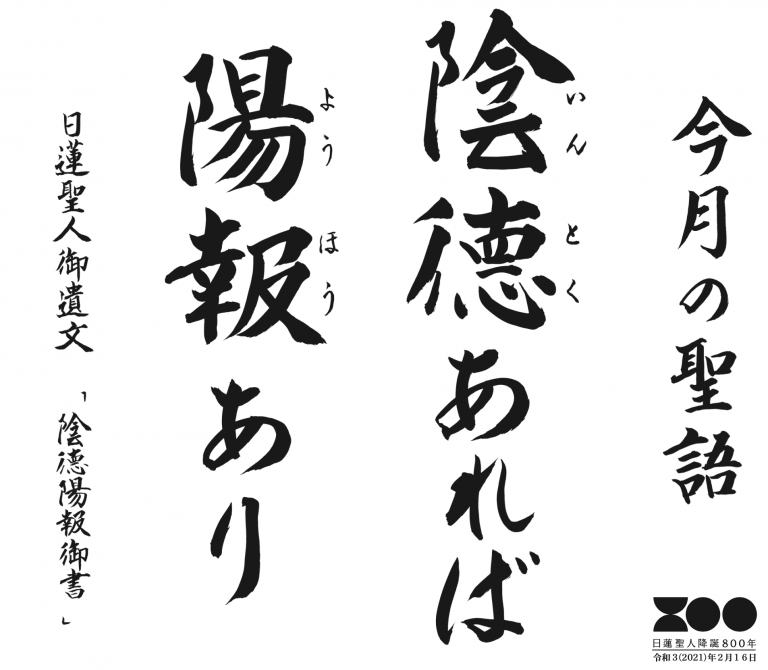 今月の聖語
陰徳あれば
いんとく
陽報あり
ようほう
日蓮聖人御遺文「陰徳陽報御書」
800
日蓮聖人降誕800年
令和3(2021)年2月16日